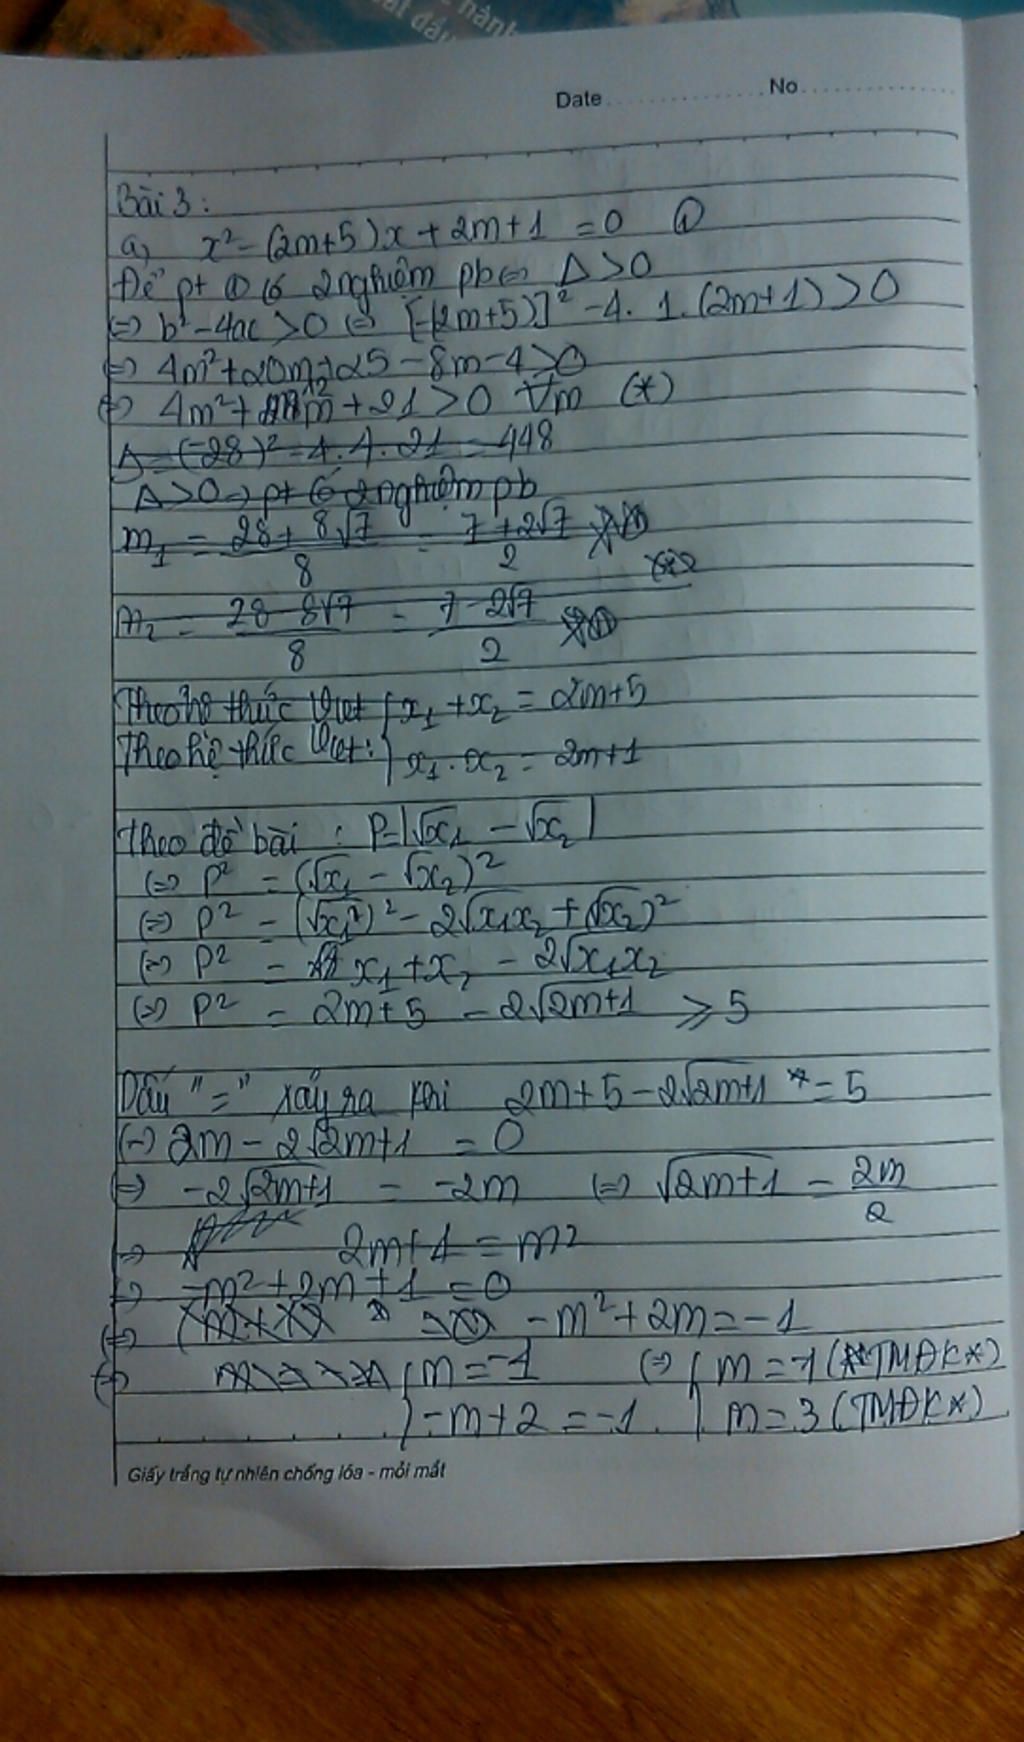 hành
bắt đầu
Date No
Bài 3:
a, x² - (2m+5)x + 2m+1 = 0 ①
Để pt ① có 2 nghiệm pb ⇔ Δ > 0
⇔ b² - 4ac > 0 ⇔ [-(2m+5)]² - 4. 1. (2m+1) > 0
⇔ 4m² + 20m + 25 - 8m - 4 > 0
⇔ 4m² + 12m + 21 > 0 ∀m (*)
Δ = (-28)² - 4. 4. 21 = 448
Δ > 0 → pt có 2 nghiệm pb
m₁ = 28 + 8√7 / 8 = 7 + 2√7 / 2
m₂ = 28 - 8√7 / 8 = 7 - 2√7 / 2
Theo hệ thức Viet { x₁ + x₂ = 2m+5
Theo hệ thức Viet: { x₁ . x₂ = 2m+1
Theo đề bài : P = |√x₁ - √x₂|
⇔ P² = (√x₁ - √x₂)²
⇔ P² = (√x₁)² - 2√x₁x₂ + (√x₂)²
⇔ P² = x₁ + x₂ - 2√x₁x₂
⇔ P² = 2m+5 - 2√2m+1 ≥ 5
Dấu "=" xảy ra khi 2m+5 - 2√2m+1 = 5
⇔ 2m - 2√2m+1 = 0
⇔ -2√2m+1 = -2m ⇔ √2m+1 = 2m / 2
⇔ 2m+1 = m²
⇔ -m² + 2m + 1 = 0
⇔ -m² + 2m = -1
⇔ { m = -1 ⇔ { m = -1 (TMĐK*)
{ -m+2 = -1 { m = 3 (TMĐK*)
Giấy trắng tự nhiên chống lóa - mỏi mắt